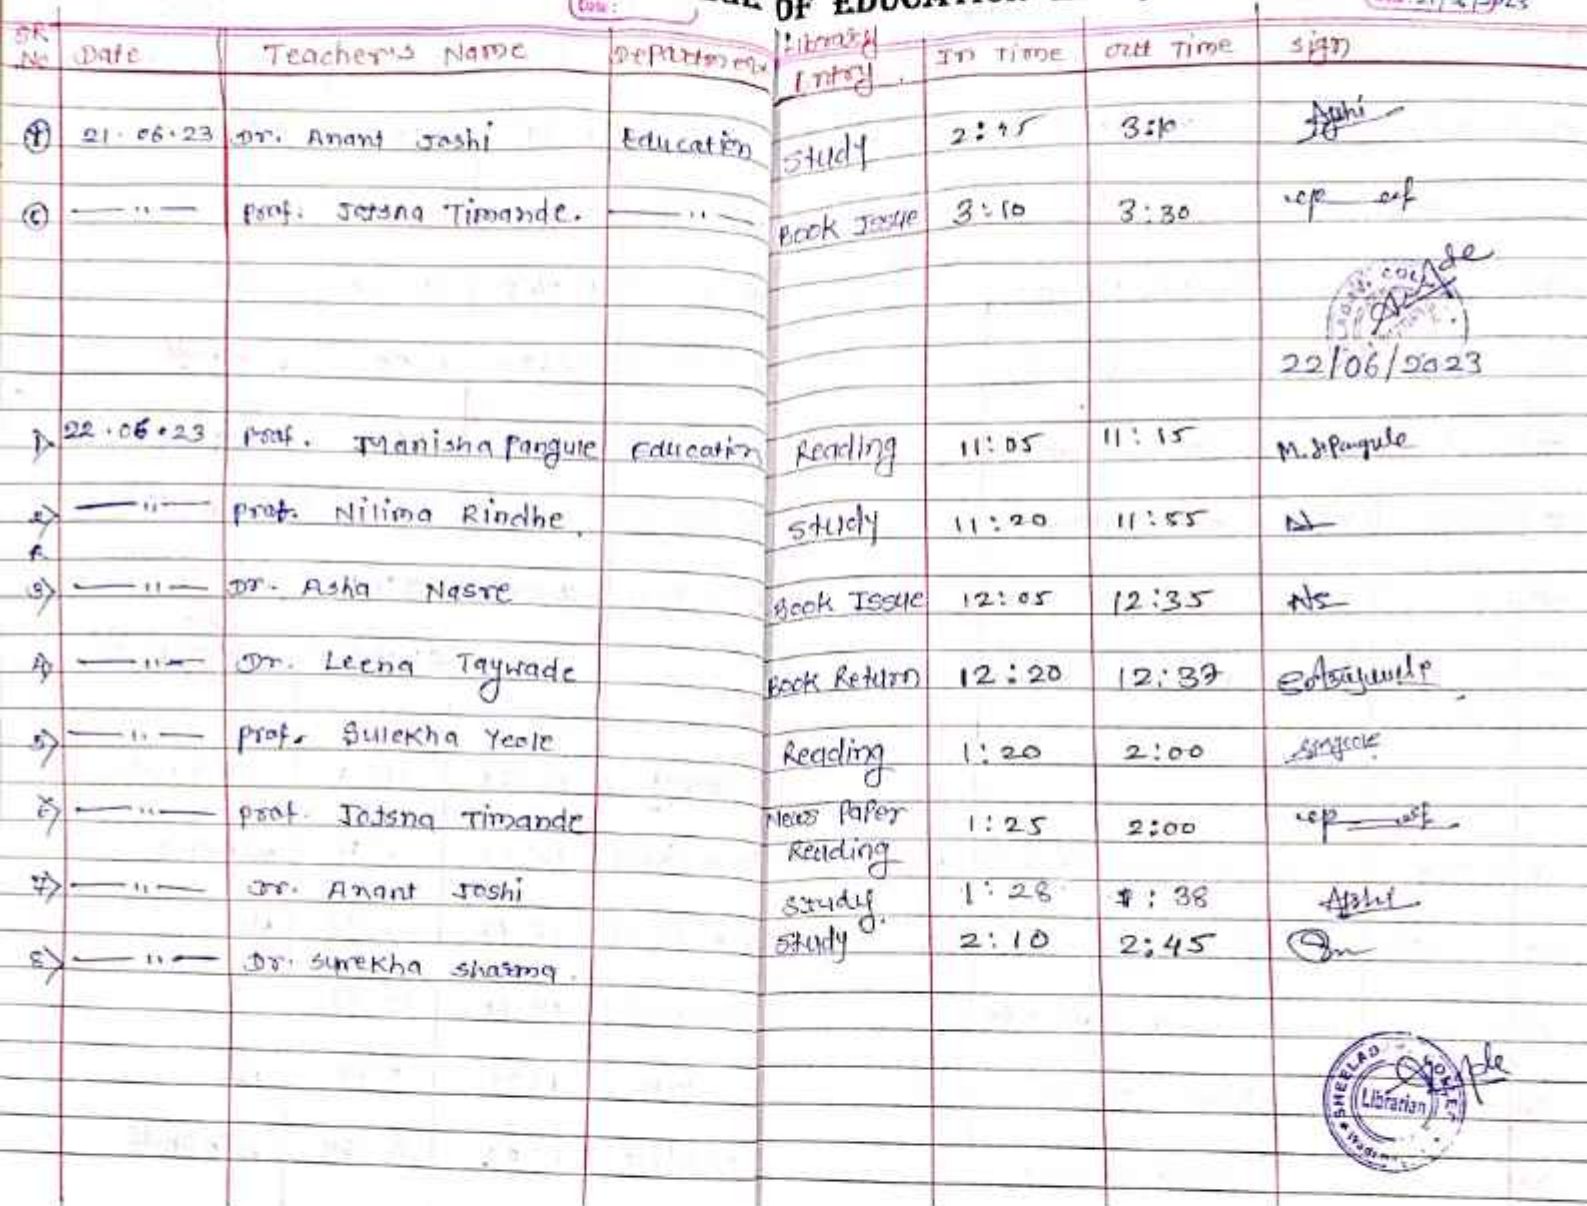 OF EDUCATION
SR No Date Teacher's Name Department Library Entry In Time Out Time Sign
21.06.23 Dr. Anant Joshi Education Study 2:45 3:10
— " — Prof. Jotsna Timande. — " — Book Issue 3:10 3:30
22/06/2023
1) 22.06.23 Prof. Manisha Pangule Education Reading 11:05 11:15 M. S. Pangule
2) — " — Prof. Nilima Rindhe. Study 11:20 11:55
3) — " — Dr. Asha Nasre Book Issue 12:05 12:35
4) — " — Dr. Leena Taywade Book Return 12:20 12:37
5) — " — Prof. Sulekha Yeole Reading 1:20 2:00
6) — " — Prof. Jotsna Timande News Paper Reading 1:25 2:00
7) — " — Dr. Anant Joshi Study. 1:28 : 38
8) — " — Dr. Surekha Sharma. Study 2:10 2:45
Librarian